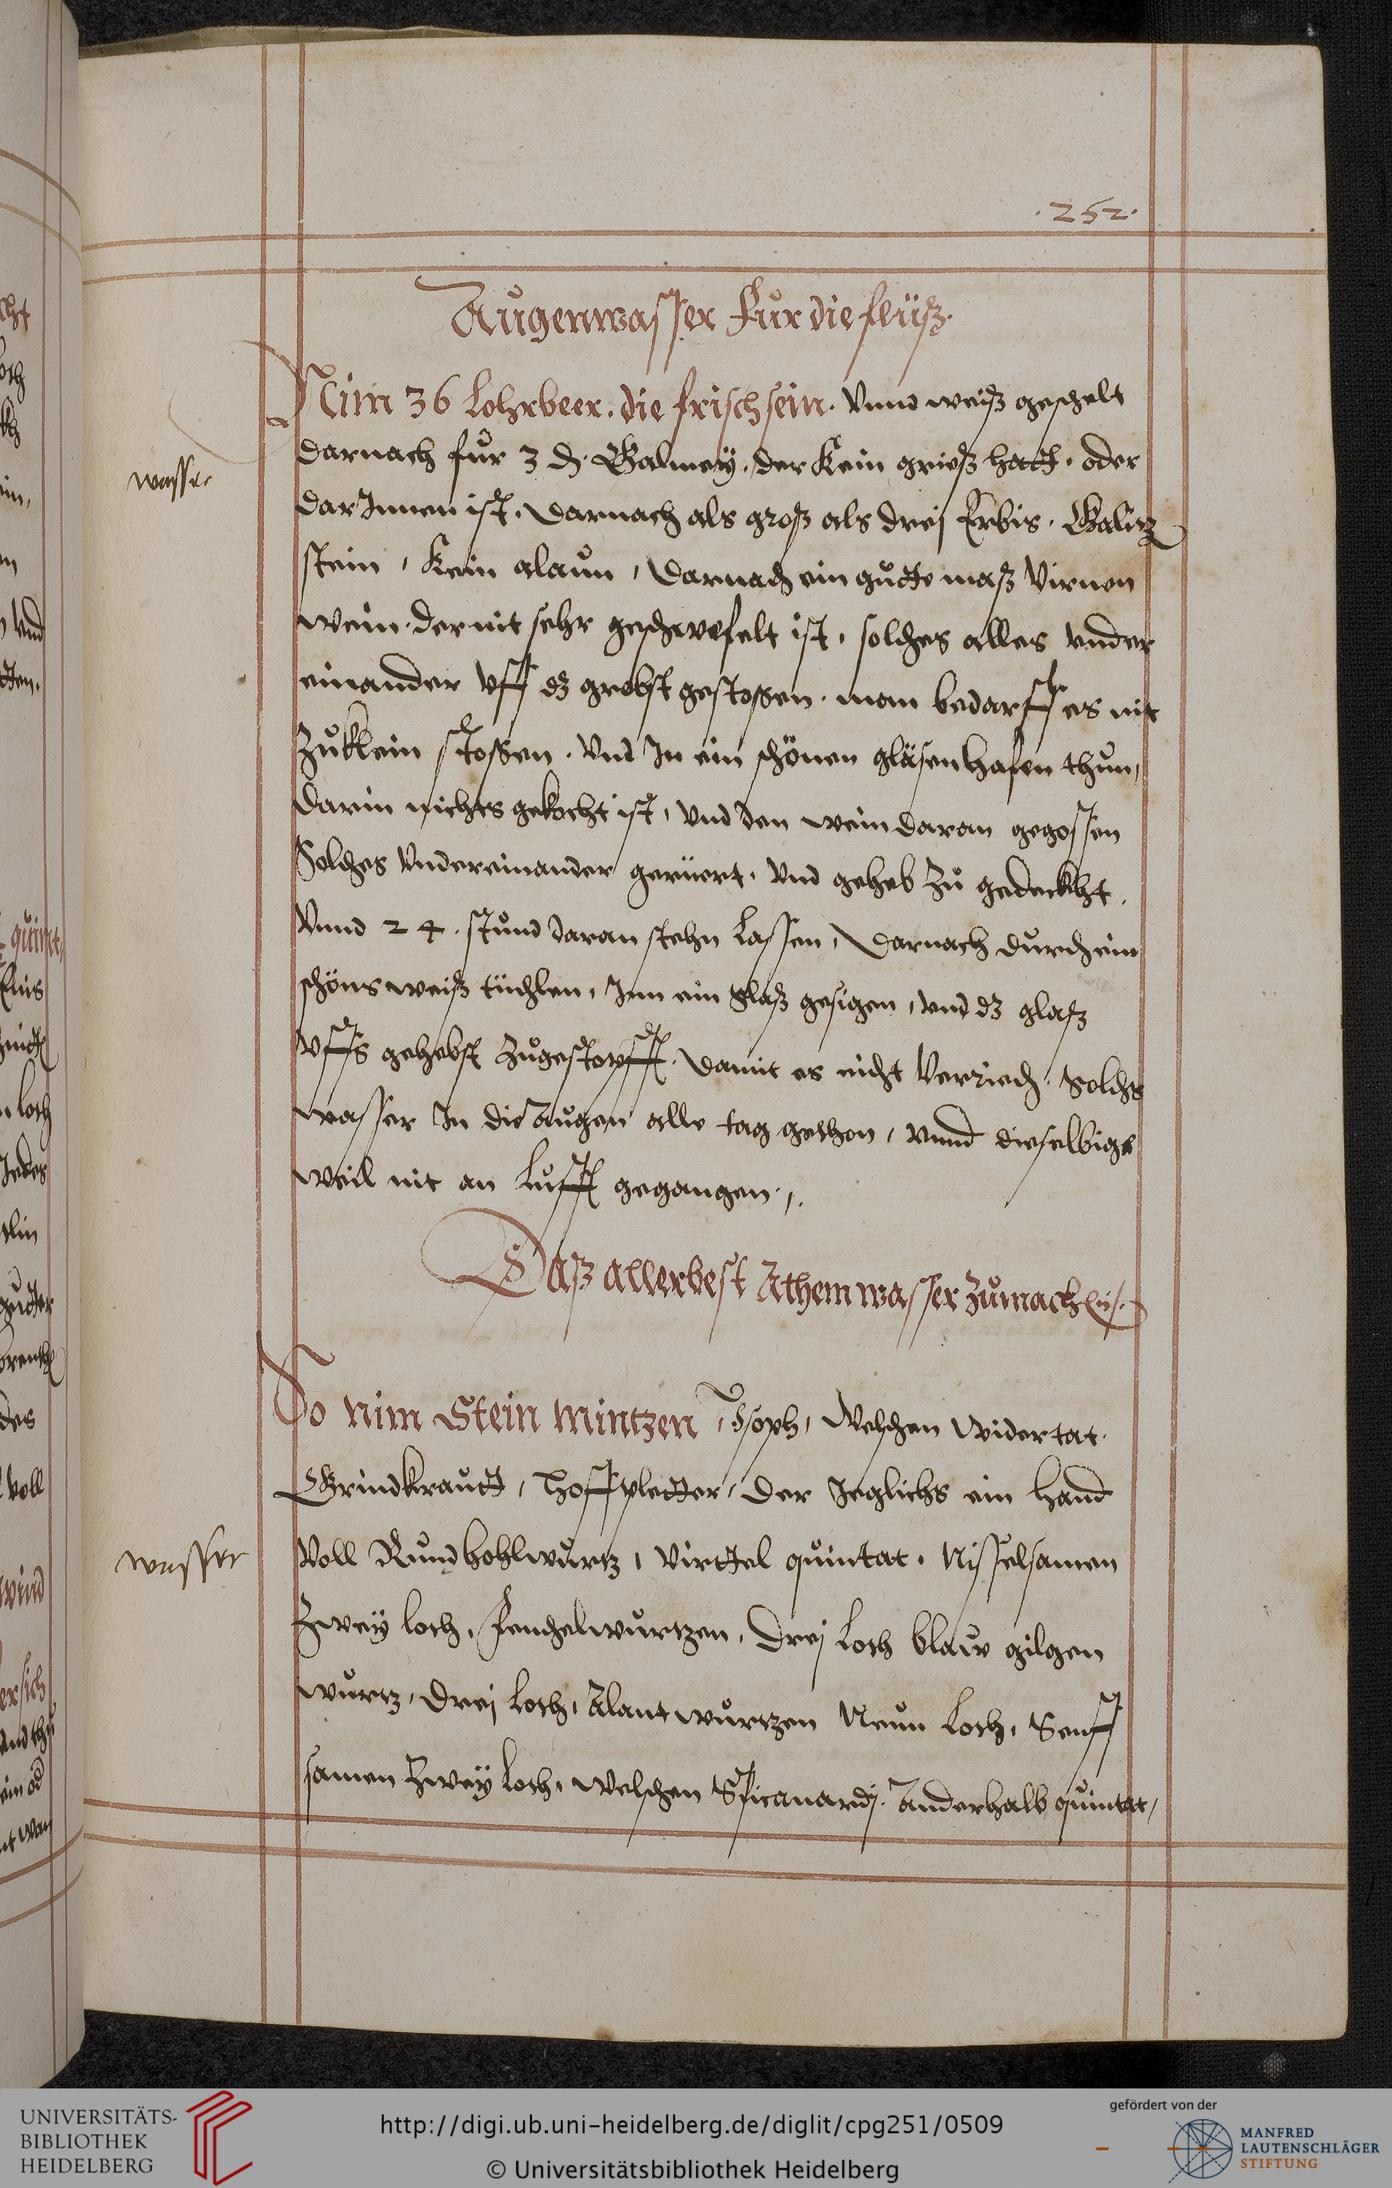 .252.
Augenwasser fur die flüß.
Nim 36 Lohrbeer. die frisch sein. Vnnd weiß geschelt
darnach fur 3 d. Galmeÿ, der Kein grieß hatt. oder
wasser
darInnen ist. Darnach als groß als drej Erbis. Galitz
stein, Kein alaun, Darnach ein gutte maß Virnen
wein. der nit sehr geschwefelt ist, solches alles vnder
einander vff dz grobst gestossen. man bedarff es nit
Zuklein stossen. Vnd In ein schönen gläsen hafen thun,
darin nichts gekocht ist, Vnd den wein daran gegossen
Solches Vndereinander gerüert. Vnd geheb zu gedeckht.
Vnnd 24. stund daran stehn Lassen, Darnach durch ein
schöns weiß tüchlen, Inn ein glaß gesigen, vnd dz glaß
vffs gehebst Zugestopfft. Damit es nicht Verriech. Solchs
wasser In die Augen alle tag gethon, Vnnd dieselbige
weil nit an Lufft gegangen.,.
Daß allerbest Athem wasser Zumach
So nim Stein mintzen, Isoph, Welschen widertat.
Grindkrautt, Hoffpletter, der Jeglichs ein hand
Voll Rund hohlwurtz, virttel quintat. Nisselsamen
wasser
Zweÿ loth, Fenchelwurtzen, Drej Loth blaw gilgen
wurtz, Drej Loth, Alant wurtzen Neun Loth, Senff
samen Zweÿ Loth, welschen Spicanardj. Anderhalb quintat,
UNIVERSITÄTS-
BIBLIOTHEK
HEIDELBERG
http://digi.ub.uni-heidelberg.de/diglit/cpg251/0509
© Universitätsbibliothek Heidelberg
gefördert von der
MANFRED
LAUTENSCHLÄGER
STIFTUNG